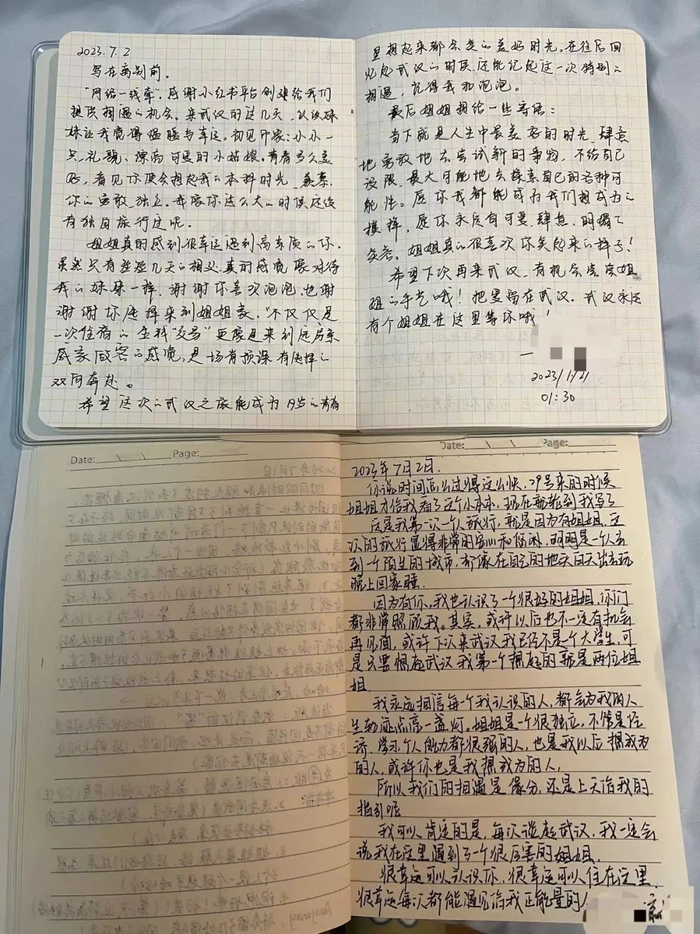 2023.7.2
写在离别前。
"网络一线牵",感谢小红书平台创建给我们
提供相遇的机会。来武汉的这几天,认识妹
妹让我觉得温暖与幸运。初见印象:小小一
只,礼貌、漂亮可爱的小姑娘。青春多么美
好,看见你便会想起我的本科时光,羡慕
你的勇敢独立,我像你这么大的时候还没
有独自旅行过呢。
姐姐真的感到很幸运遇到高素质的你,
虽然只有些些几天的相处,真的感觉跟对待
我的妹妹一样,谢谢你喜欢泡泡,也谢
谢谢你选择来到姐姐家,"不仅仅是
一次住宿的"交易"更像是来到远房亲
戚家做客的感觉,是场有预谋有选择的
双向奔赴。
希望这次的武汉之旅能成为的青春
里想起来都会笑的美好时光,在往后回
忆起武汉的时候,还能记起这一次特别的
相遇,记得我和泡泡。
最后姐姐想给一些寄语:
当下就是人生中最美好的时光,肆意
地勇敢地去尝试新的事物,不给自己
设限,最大可能地去探索自己的各种可
能性。愿你我都能成为我们想成为的
模样,愿你永远有可爱、肆意、明媚的
姿态。姐姐真的很喜欢你笑起来的样子!
希望下次再来武汉,有机会尝尝姐
姐的手艺哦!把思念留在武汉,武汉永远
有个姐姐在这里等你哦!
—
2023/7/2
01:30
Date: Page:
Date: Page:
2023年7月2日.
你说时间怎么过得这么快,29号来的时候
姐姐才给我看了这个小本本,现在就轮到我写了
这是我第一次一个人旅行,就是因为有姐姐,这
次的旅行显得非常的安心和悠闲,明明是一个人去
到一个陌生的城市,却像在自己的地盘白天出去玩
晚上回家睡.
因为有你,我也认识了一个很好的姐姐,你们
都非常照顾我。其实,或许以后也不一定有机会
再见面,或许下次来武汉我已经不是个大学生,可
是只要想起武汉我第一个想起的就是两位姐
姐
我永远相信每个我认识的人,都会为我的人
生轨迹点亮一盏灯,姐姐是个很独立,不管是经
济、学习、个人能力都很强的人,也是我以后想成为
的人,或许你也是我想成为的人,
所以我们的相遇是缘分,还是上天给我的
指引呢
我可以肯定的是,每次谈起武汉,我一定会
说我在这里遇到了一个很厉害的姐姐.
很幸运可以认识你,很幸运可以住在这里.
很幸运每次都能遇见给我正能量的人